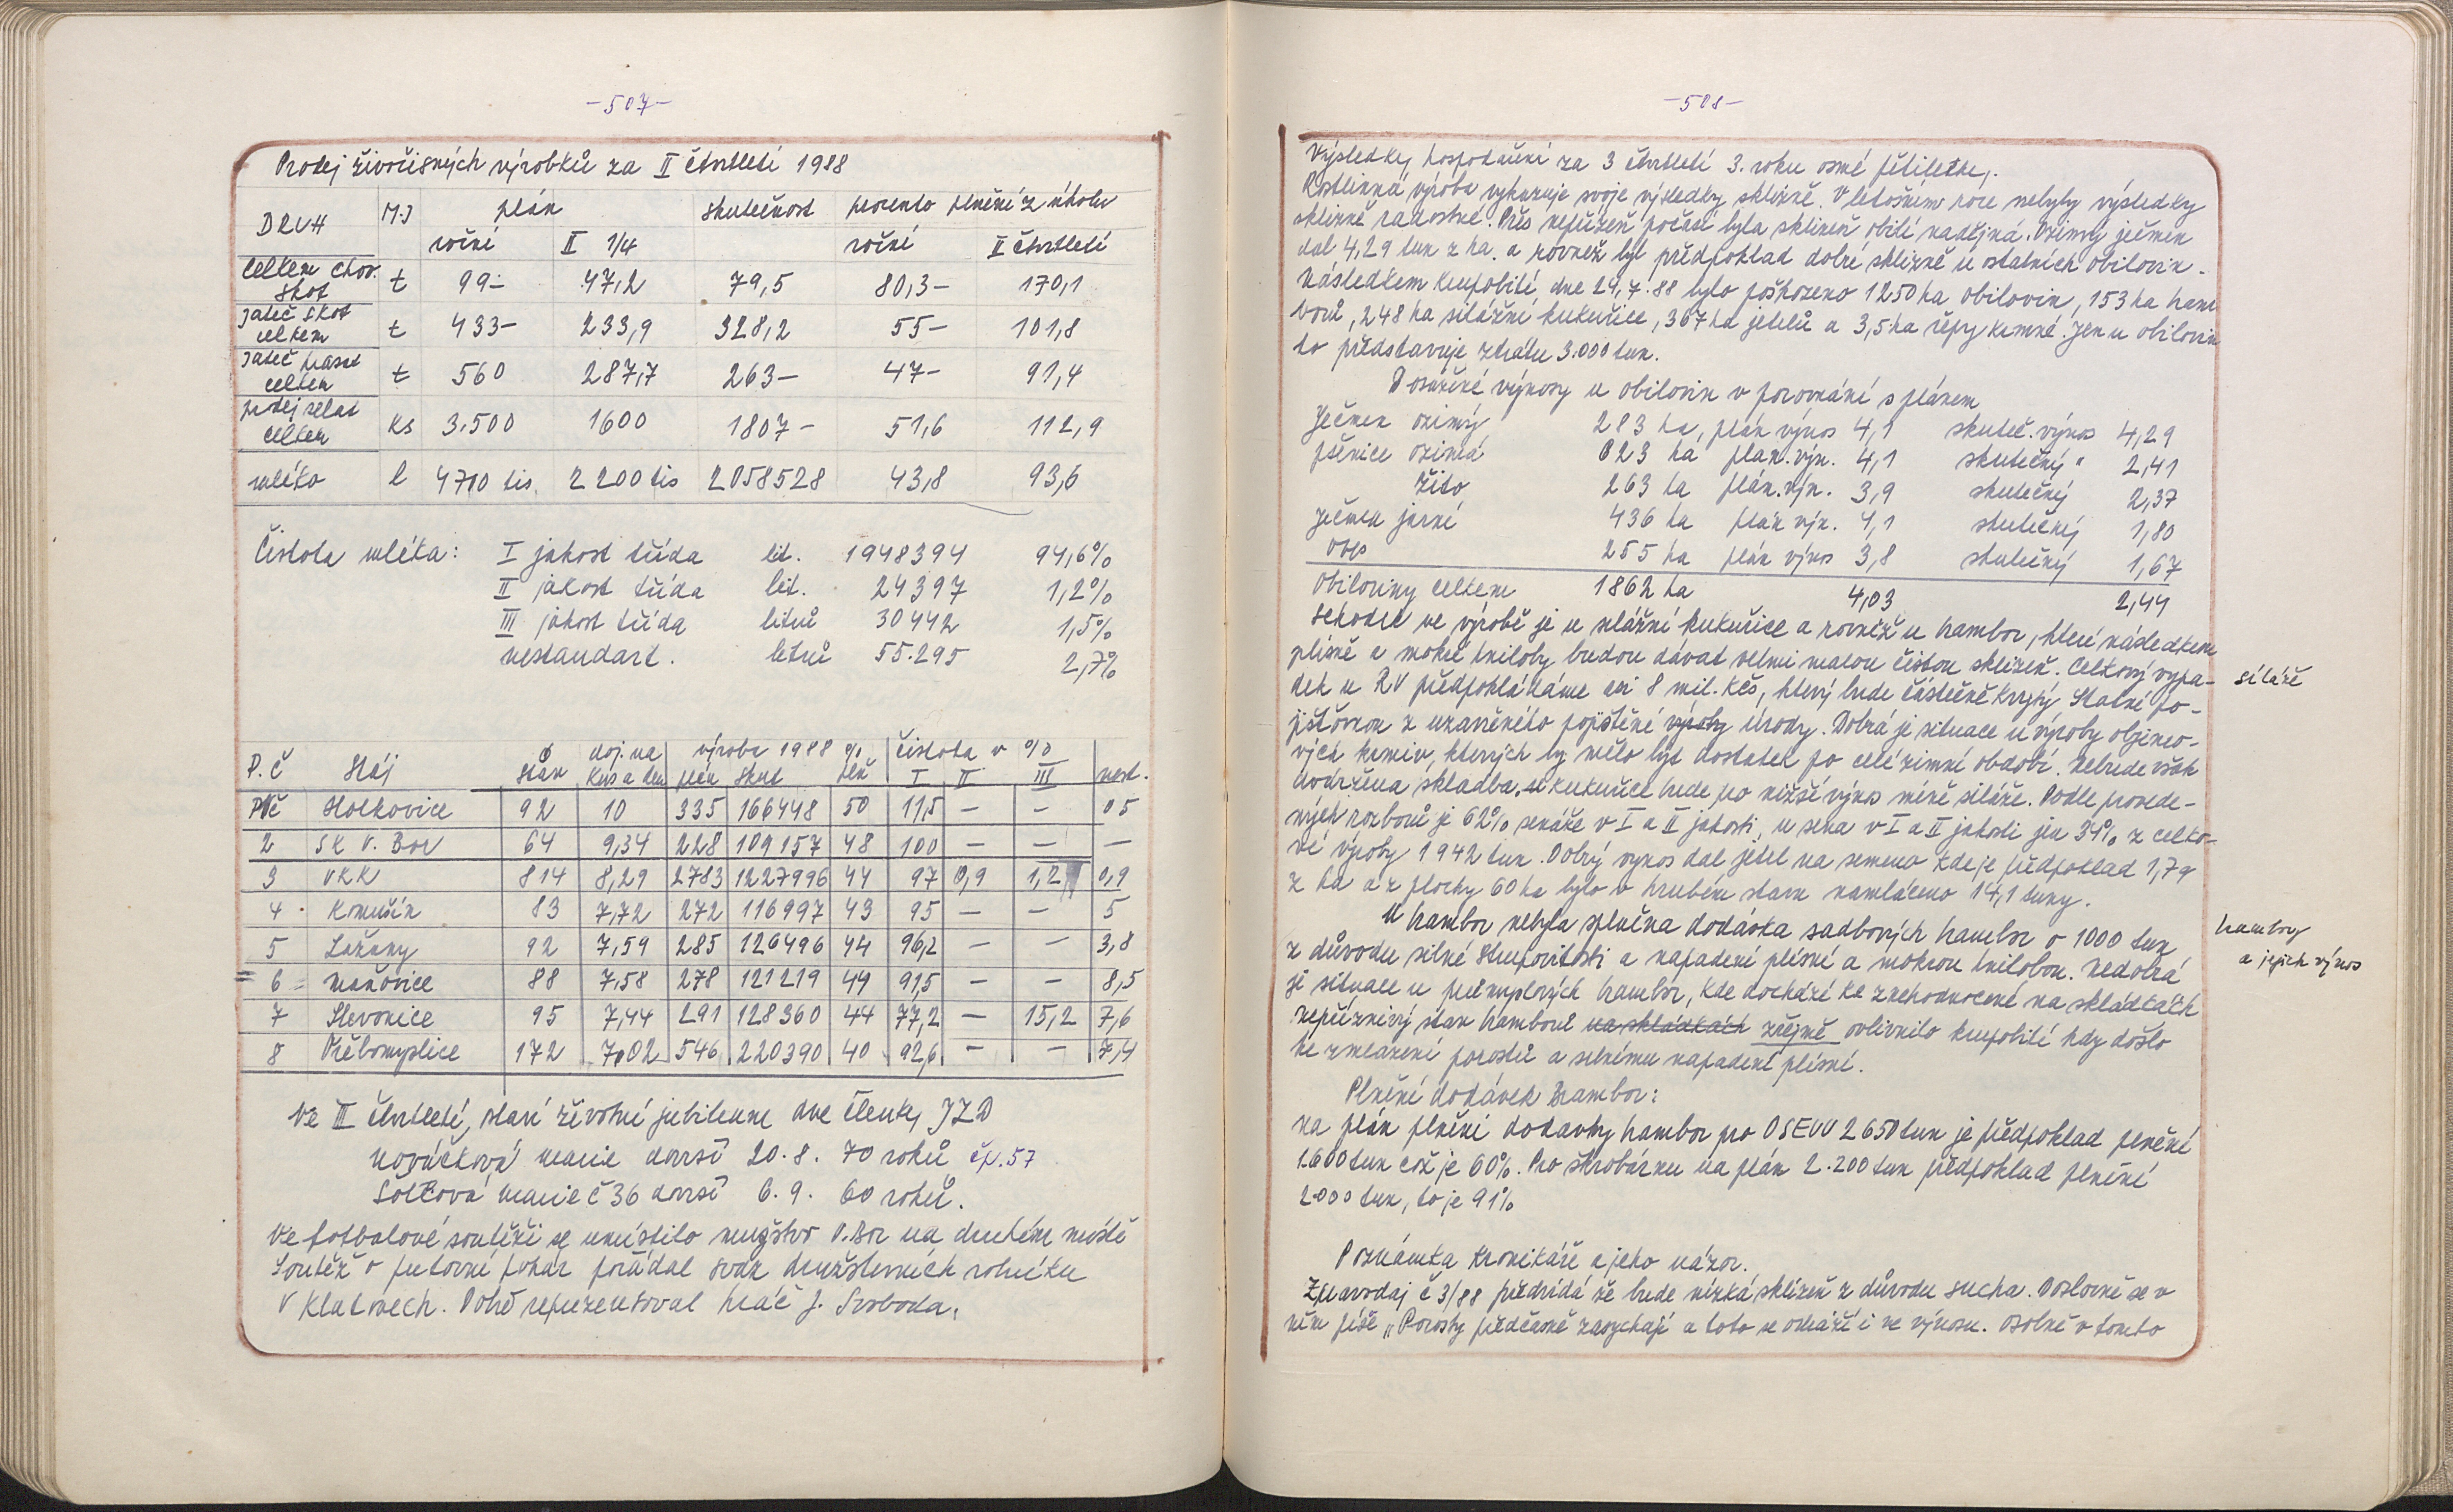 -507-
Prodej živočišných výrobků za II čtvrtletí 1988
DRUH M.J plán skutečnost procento plnění z úkolu
roční II 1/4 roční II čtvrtletí
Celkem chov. skot t 99- 47,2 79,5 80,3- 170,1
jateč skot celkem t 433- 233,9 328,2 55- 101,8
jateč prasat celkem t 560 287,7 263- 47- 91,4
prdej selat celkem ks 3.500 1600 1807- 51,6 112,9
mléko l 4700 tis. 2200 tis 2058528 43,8 93,6
Čistota mléka: I jakost třída lit. 1948394 94,6%
II jakost třída lit. 24397 1,2%
III jakost třída litrů 30442 1,5%
nestandart. litrů 55.295 2,7%
P.č Stáj stav doj. na kus a den výroba 1988 plán skut % plň čistota v % I II III nest.
Holkovice 92 10 335 166448 50 11,5 - - 05
2 SK V. Bor 64 9,34 228 109157 48 100 - - -
3 VKK 814 8,29 2783 1227996 44 97 0,9 1,2 0,9
4 Komušín 83 7,72 272 116997 43 95 - - 5
5 Lažany 92 7,59 285 126496 44 96,2 - - 3,8
= 6 = Maňovice 88 7,58 278 121219 44 91,5 - - 8,5
7 Slevonice 95 7,44 291 128360 44 77,2 - 15,2 7,6
8 Třebomyslice 172 7,02 546 220390 40 92,6 - - 7,4
Ve III čtvrtletí, slaví životní jubileum dvě členky JZD
Nováčková Marie dovrší 20.8. 70 roků čp.57
Šolcová Marie č 36 dovrší 6.9. 60 roků.
Ve fotbalové soutěži se umístilo mužstvo V.Bor na druhém místě
Soutěž o putovní pohár pořádal svaz družstevních rolníků
V Klatovech. Dobře reprezentoval hráč J. Svoboda.
-508-
Výsledky hospodaření za 3 čtvrtletí 3. roku osmé pětiletky.
Rostlinná výroba vykazuje svoje výsledky sklizně. V letošním roce nebyly výsledky
sklizně radostné. Přes nepřízeň počasí byla sklizeň obilí nadějná. Ozimý ječmen
dal 4,29 tun z ha. a rovněž byl předpoklad dobré sklizně u ostatních obilovin.
Následkem krupobití dne 29.7.88 bylo poškozeno 1250 ha obilovin, 153 ha bram
borů, 248 ha silážní kukuřice, 367 ha jetelů a 3,5 ha řepy krmné. Jen u obilovin
to představuje ztrátu 3.000 tun.
Dosažené výnosy u obilovin v porovnání s plánem
Ječmen ozimý 283 ha, plán výnos 4,1 skuteč. výnos 4,29
pšenice ozimá 623 ha plán. výn. 4,1 skutečný " 2,41
Žito 263 ha plán. výn. 3,9 skutečný 2,37
Ječmen jarní 436 ha plán výn. 4,1 skutečný 1,80
oves 255 ha plán výnos 3,8 skutečný 1,67
Obiloviny celkem 1862 ha 4,03 2,44
schodek ve výrobě je u silážní kukuřice a rovněž u brambor, které následkem
plísně a mokré hniloby budou dávat velmi malou čistou sklizeň. Celkový výpa-
dek u RV předpokládáme asi 8 mil. Kčs, který bude částečně krytý Státní po-
jišťovnou z uzavřeného pojištění výroby úrody. Dobrá je situace u výroby objemo-
vých krmiv, kterých by mělo být dostatek po celé zimní období. Nebude však
dodržena skladba. u kukuřice bude pro nižší výnos méně siláže. Podle provede-
ných rozborů je 62% senáže v I a II jakosti, u sena v I a II jakosti jen 34% z celko-
vé výroby 1942 tun. Dobrý výnos dal jetel na semeno kde je předpoklad 1,7q
z ha a z plochy 60 ha bylo v hrubém stavu namláceno 14,1 tuny.
siláže
U brambor nebyla splněna dodávka sadbových brambor o 1000 tun
z důvodu silné strupovitosti a napadení plísní a mokrou hnilobou. Nedobrá
je situace u průmyslových brambor, kde dochází ke znehodnocení na skládkách
nepříznivý stav bramborů na skládkách zřejmě ovlivnilo krupobití kdy došlo
ke zmlazení porostů a silnému napadení plísní.
brambory
a jejich výnos
Plnění dodávek brambor:
na plán plnění dodávky brambor pro OSEVU 2650 tun je předpoklad plnění
1.600 tun což je 60%. Pro škrobárnu na plán 2.200 tun předpoklad plnění
2000 tun, to je 91%
Poznámka kronikáře a jeho názor.
Zpravodaj č 3/88 předvídá že bude nízká sklizeň z důvodu sucha. Doslovně se v
něm píše „Porosty předčasně zasychají a toto se odráží i ve výnosu. osobně v tomto